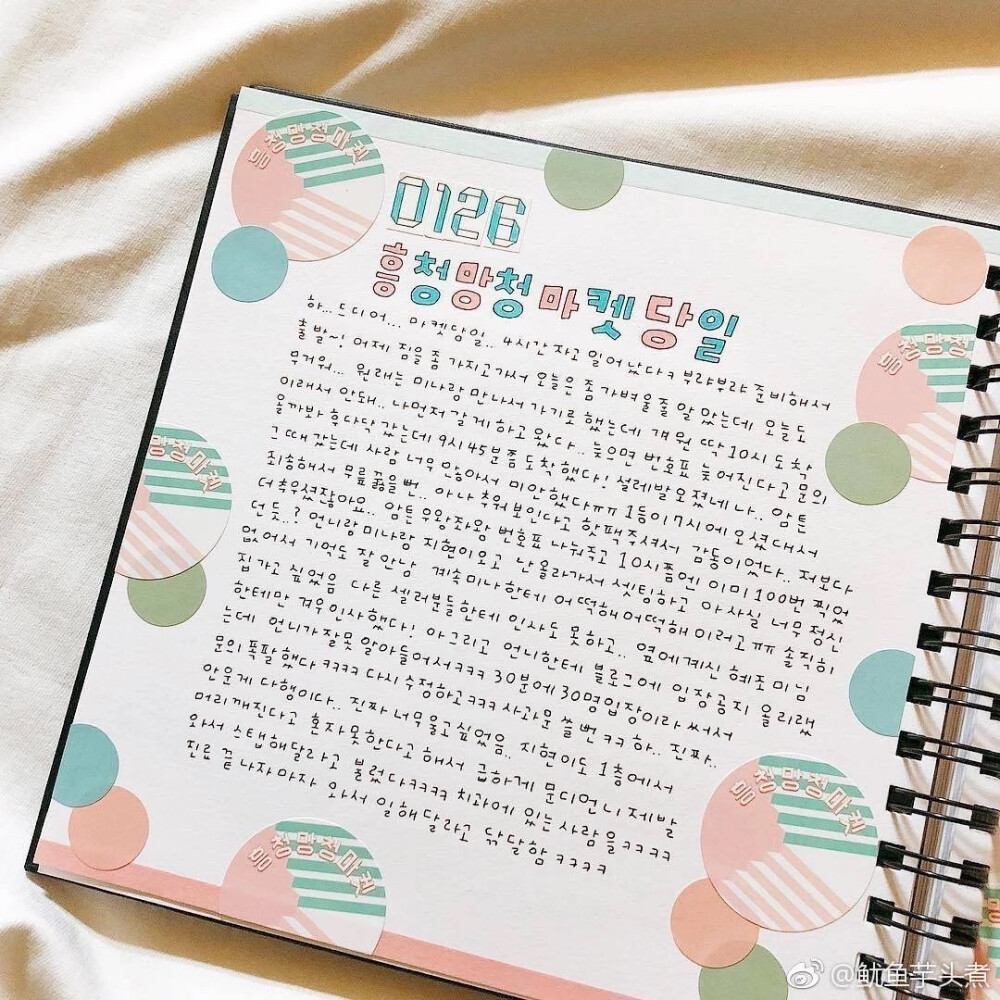 흥청망청마켓
0126
흥청망청마켓당일
하... 드디어... 마켓당일.. 4시간 자고 일어났다ㅋ 부랴부랴 준비해서
출발~! 어제 짐을 좀 가지고가서 오늘은 좀 가벼울줄 알았는데 오늘도
무거워... 원래는 미나랑 만나서 가기로 했는데 걔 원 딱 10시 도착
이래서 안돼.. 나먼저 갈게 하고 왔다.. 늦으면 번호표 늦어진다고 문의
올까봐 후다닥 갔는데 9시 45분쯤 도착했다! 설레발 오졌네 나.. 암튼
그때 갔는데 사람 너무 많아서 미안했다ㅠㅠ 1등이 7시에 오셨대서
죄송해서 무릎꿇을뻔.. 아나 추워보인다고 핫팩 주셔서 감동이었다.. 저보다
더 추우셨잖아요.. 암튼 우왕좌왕 번호표 나눠주고 10시쯤엔 이미 100번 찍었
던듯..? 언니랑 미나랑 지현이 오고 난 올라가서 셋팅하고 아 사실 너무 정신
없어서 기억도 잘 안남 계속 미나한테 어떡해 어떡해 이러고ㅠㅠ 솔직히
집가고 싶었음 다른 셀러분들한테 인사도 못하고.. 옆에 계신 혜조미님
한테만 겨우 인사했다! 아 그리고 언니한테 블로그에 입장공지 올리랬
는데 언니가 잘못 알아들어서ㅋㅋㅋ 30분에 30명 입장이라 써서
문의 폭팔했다ㅋㅋㅋㅋ 다시 수정하고ㅋㅋㅋ 사과문 쓸 뻔ㅋㅋ 하.. 진짜..
안운게 다행이다.. 진짜 너무 울고싶었음.. 지현이도 1층에서
머리 깨진다고 혼자 못한다고 해서 급하게 문디언니 제발
와서 스탭해달라고 불렀다ㅋㅋㅋㅋ 치과에 있는 사람을ㅋㅋㅋㅋ
진료 끝나자마자 와서 일해달라고 닦달함ㅋㅋㅋㅋ
흥청망청마켓
흥청망청마켓
흥청망청마켓
흥청망청마켓
@鱿鱼芋头煮